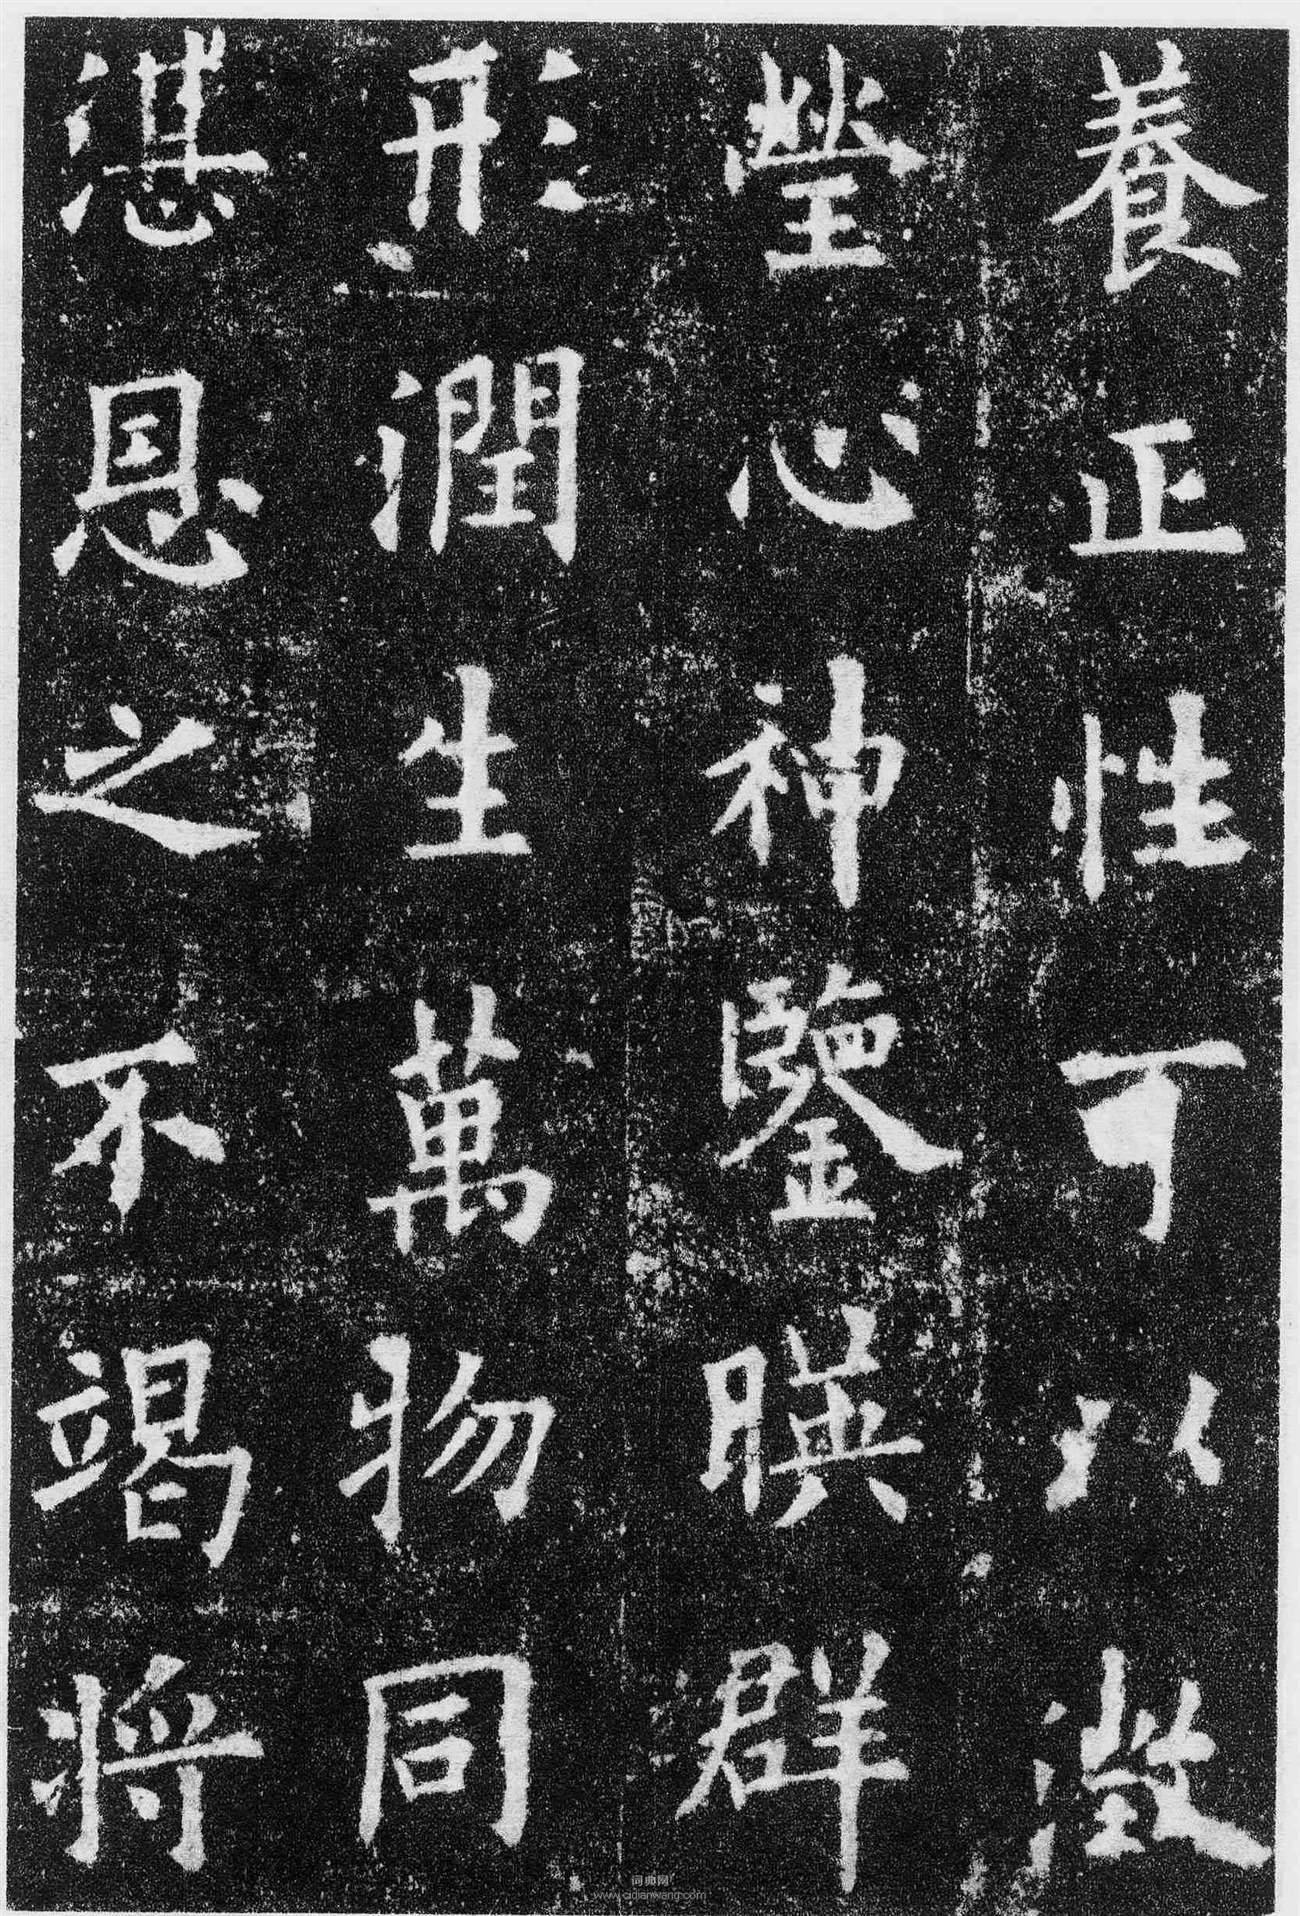 養正性可以澂
瑩心神鑒暎群
形潤生萬物同
湛恩之不竭將
词典网
www.cidianwang.com